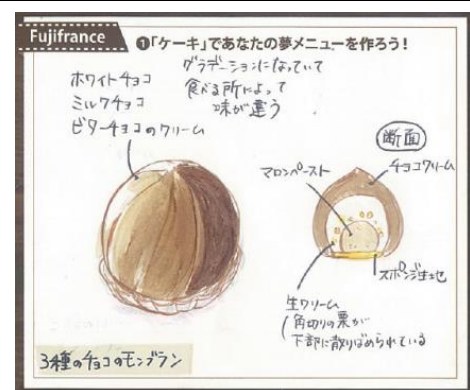 Fujifrance
❶「ケーキ」であなたの夢メニューを作ろう!
ホワイトチョコ
ミルクチョコ
ビターチョコのクリーム
グラデーションになっていて
食べる所によって
味が違う
断面
マロンペースト
チョコクリーム
スポンジ生地
生クリーム
角切りの栗が
下部に散りばめられている
3種のチョコのモンブラン